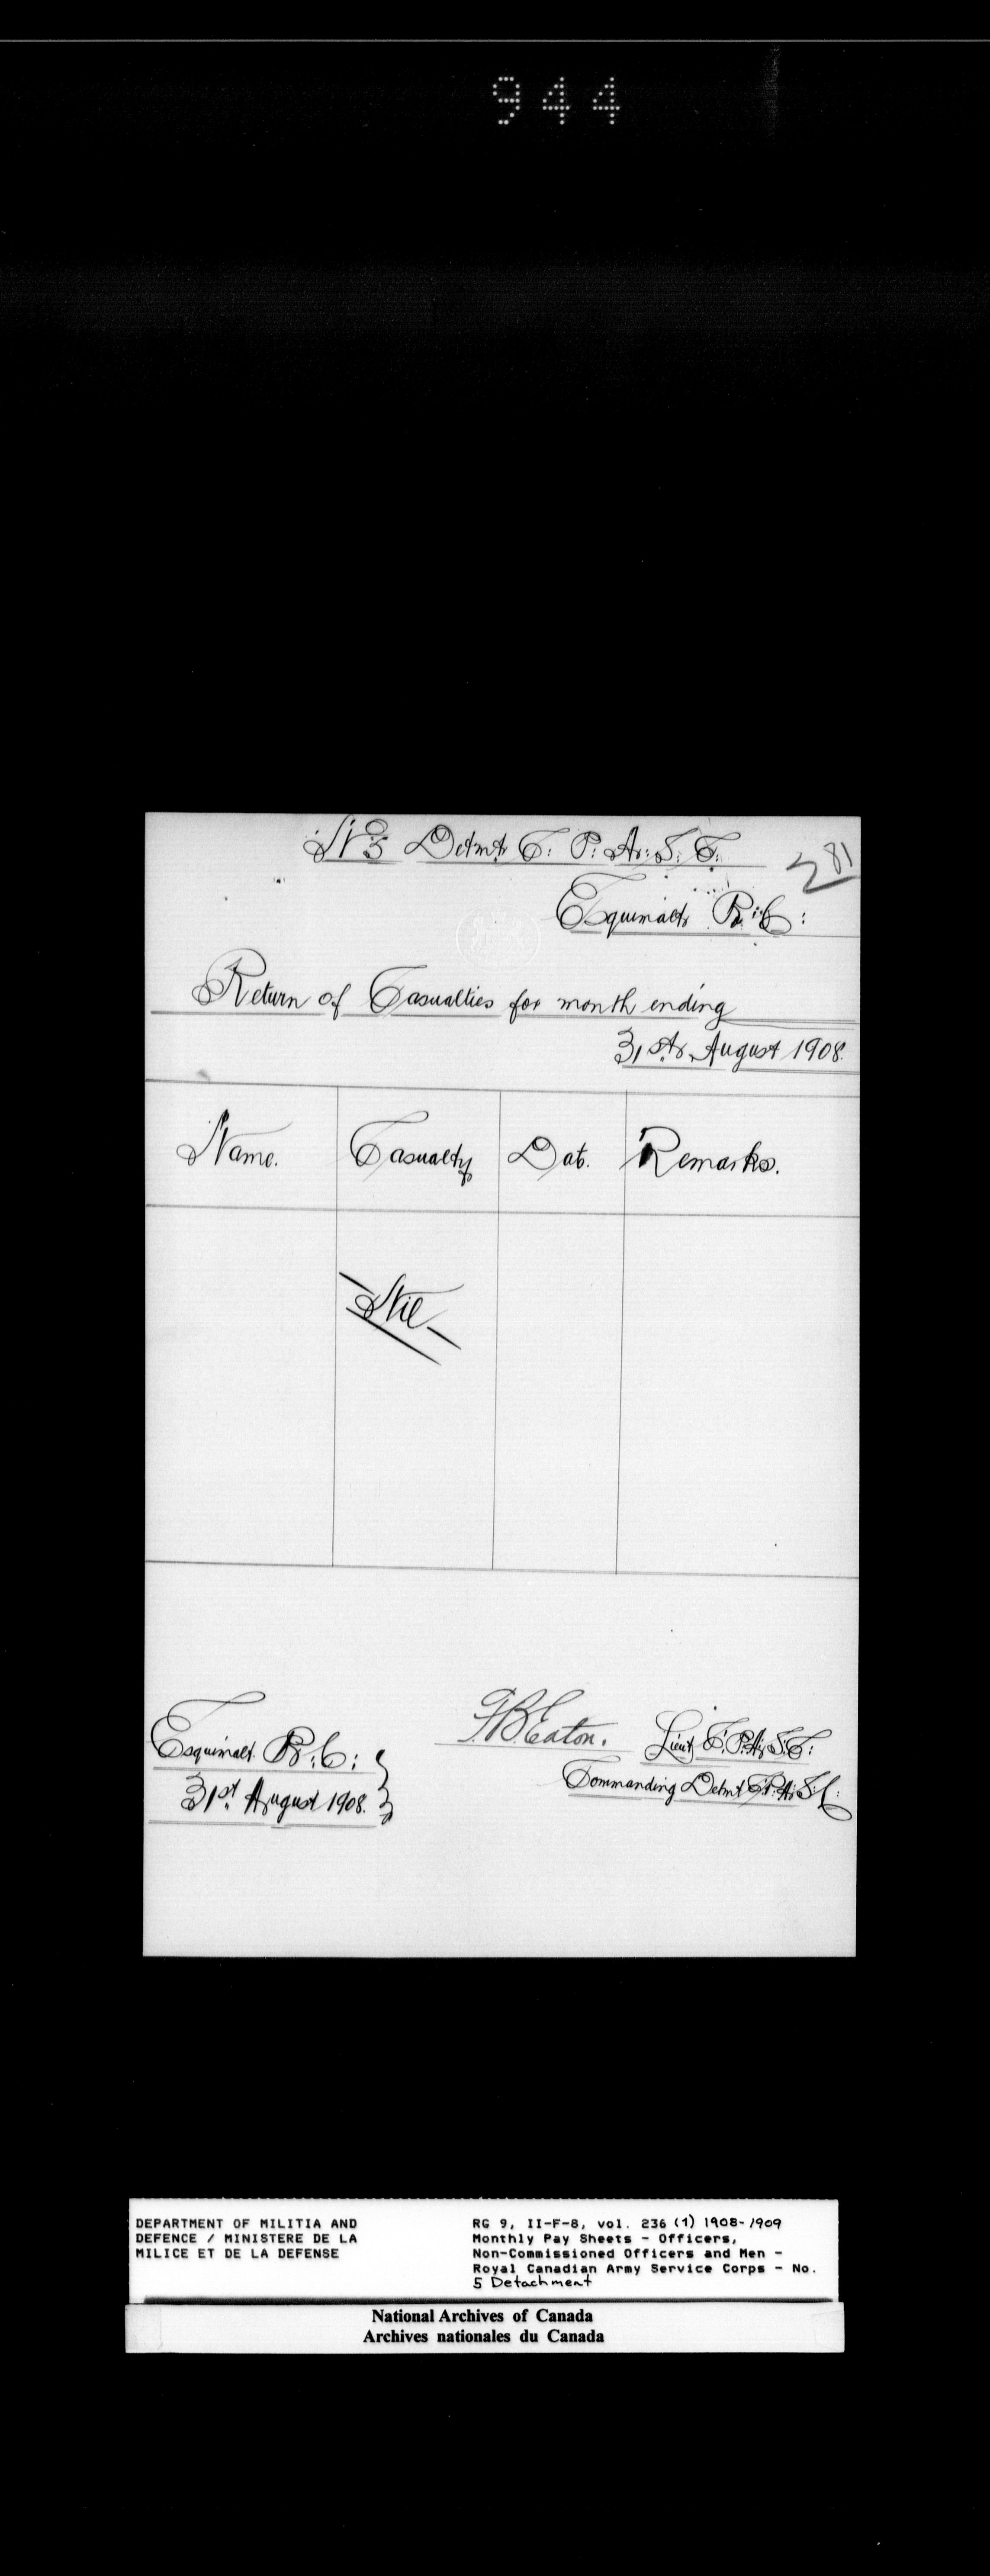 944
No 5 Detmt C. P. A. S. C.
281
Esquimalt B.C:
Return of Casualties for month ending
31st August 1908.
Name. Casualty Dat. Remarks.
- Nil -
Esquimalt B.C:
31st August 1908.
F.B.Eaton. Lieut C.P.A.S.C:
Commanding Detmt C.P.A.S.C:
DEPARTMENT OF MILITIA AND
DEFENCE / MINISTERE DE LA
MILICE ET DE LA DEFENSE
RG 9, II-F-8, vol. 236 (1) 1908-1909
Monthly Pay Sheets - Officers,
Non-Commissioned Officers and Men -
Royal Canadian Army Service Corps - No.
5 Detachment
National Archives of Canada
Archives nationales du Canada